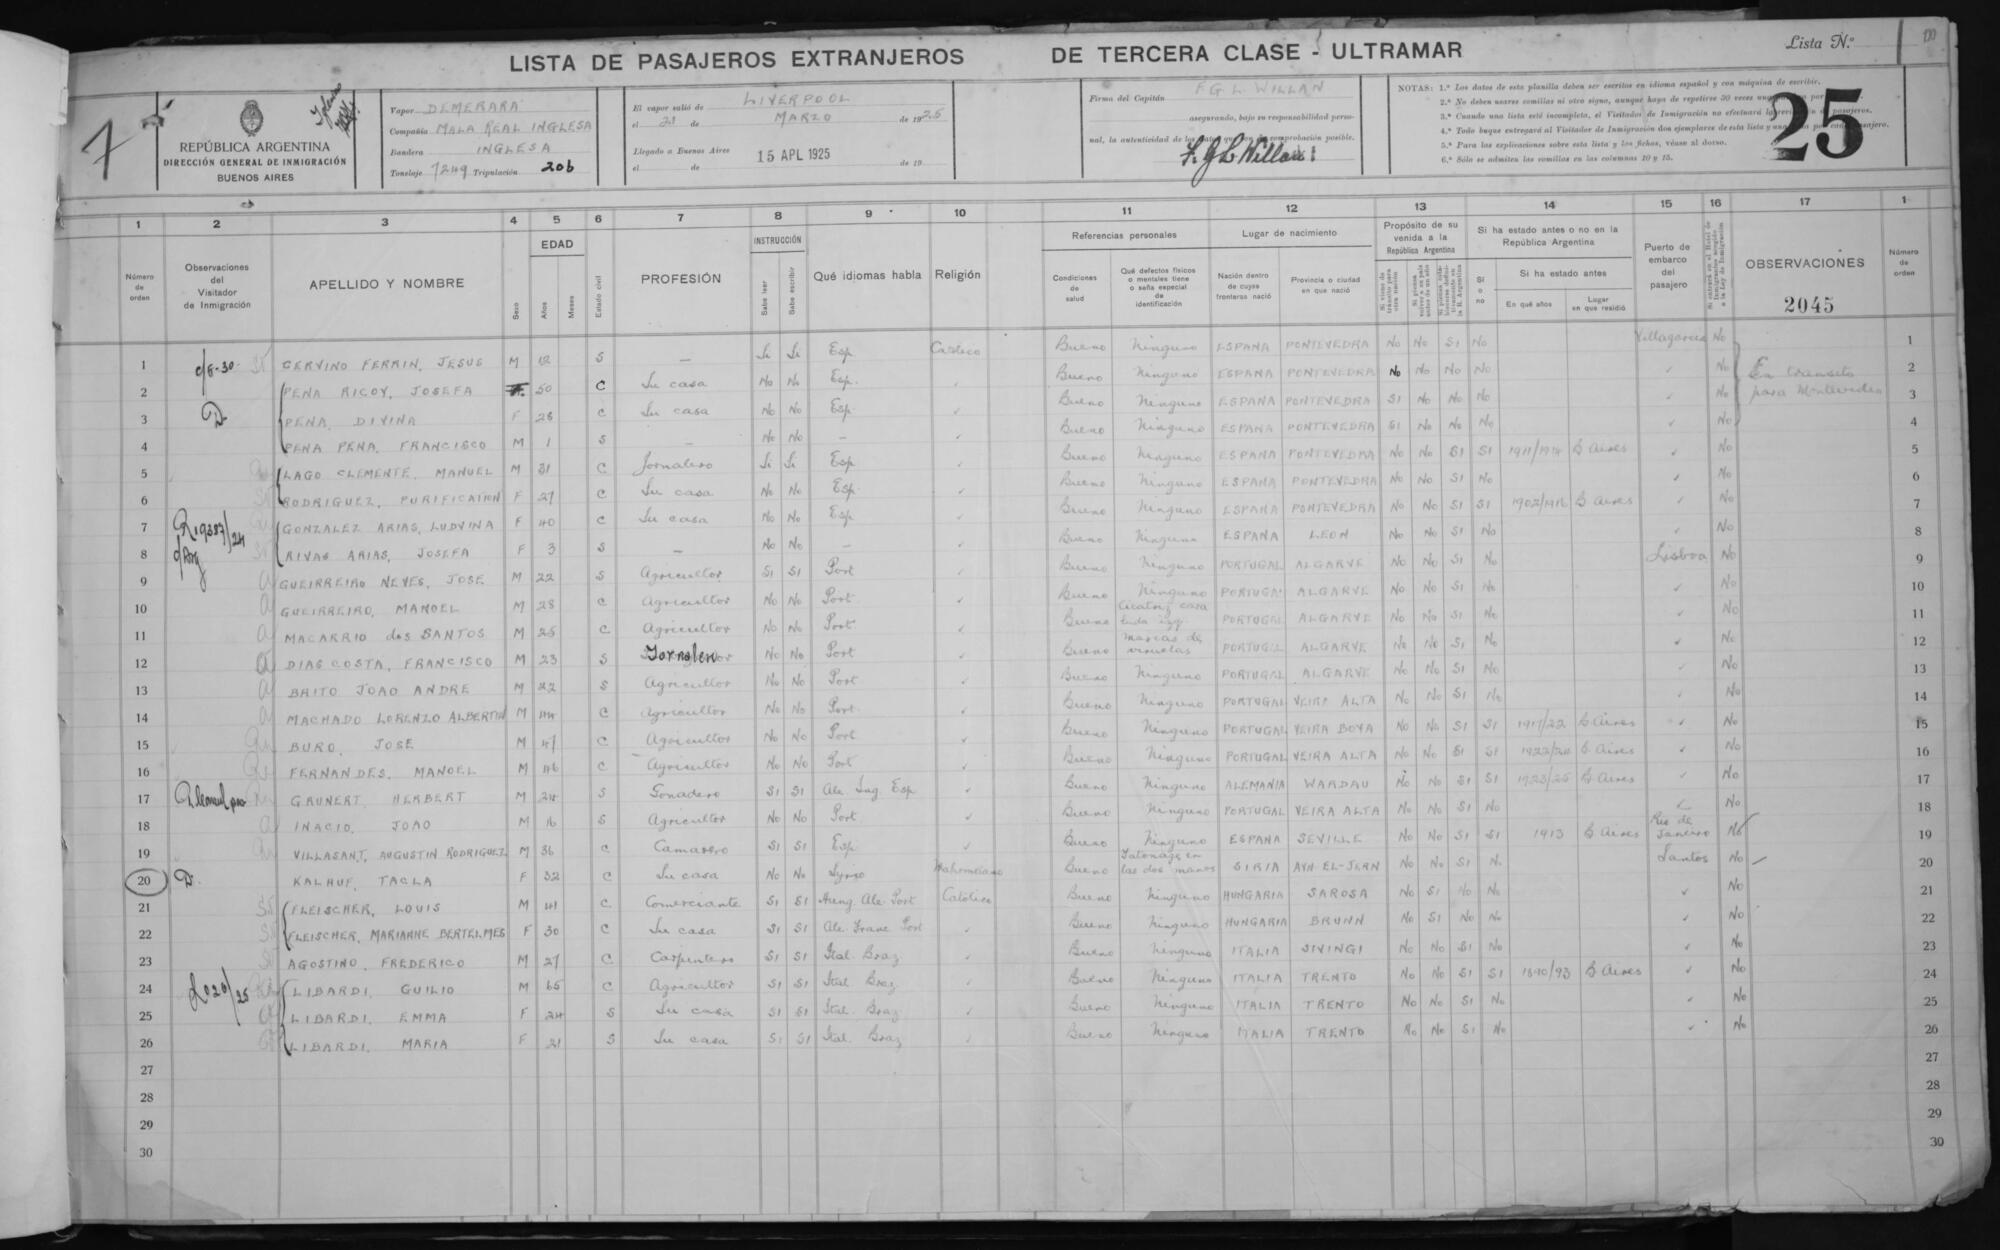 LISTA DE PASAJEROS EXTRANJEROS DE TERCERA CLASE - ULTRAMAR
Lista N.º
7
REPÚBLICA ARGENTINA
DIRECCIÓN GENERAL DE INMIGRACIÓN
BUENOS AIRES
Vapor DEMERARA
Compañía MALA REAL INGLESA
Bandera INGLESA
Tonelaje 7249 Tripulación 206
El vapor salió de LIVERPOOL
el 21 de MARZO de 1925
Llegado a Buenos Aires
15 APL 1925
el de de 19
Firma del Capitán F G L WILLAN
asegurando, bajo su responsabilidad personal, la autenticidad de los datos que son de comprobación posible.
F. G L Willan
NOTAS: 1.ª Los datos de esta planilla deben ser escritos en idioma español y con máquina de escribir.
2.ª No deben usarse comillas ni otro signo, aunque haya de repetirse 30 veces
3.ª Cuando una lista esté incompleta, el Visitador de Inmigración no efectuará pasajeros.
4.ª Todo buque entregará al Visitador de Inmigración dos ejemplares de esta lista y una por cada pasajero.
5.ª Para las explicaciones sobre esta lista y las fichas, véase al dorso.
6.ª Sólo se admiten las comillas en las columnas 10 y 15.
25
1 2 3 4 5 6 7 8 9 10 11 12 13 14 15 16 17 1
Número de orden
Observaciones del Visitador de Inmigración
APELLIDO Y NOMBRE
Sexo
EDAD
Años
Meses
Estado civil
PROFESIÓN
INSTRUCCIÓN
Sabe leer
Sabe escribir
Qué idiomas habla
Religión
Referencias personales
Condiciones de salud
Qué defectos físicos o mentales tiene o seña especial de identificación
Lugar de nacimiento
Nación dentro de cuyas fronteras nació
Provincia o ciudad en que nació
Propósito de su venida a la República Argentina
Si ha estado antes o no en la República Argentina
Sí o no
Si ha estado antes
En qué años
Lugar en que residió
Puerto de embarco del pasajero
OBSERVACIONES
2045
Número de orden
1 CERVINO FERRIN, JESUS M 12 S — Si Si Esp Catolico Bueno Ninguno ESPANA PONTEVEDRA No No SI No Villagarcia No 1
2 PENA RICOY, JOSEFA F 50 C Su casa No No Esp. Bueno Ninguno ESPANA PONTEVEDRA No No No No ✓ No En transito 2
3 D. PENA, DIVINA F 28 C Su casa No No Esp ✓ Bueno Ninguno ESPANA PONTEVEDRA SI No No No ✓ No para Montevideo 3
4 PENA PENA, FRANCISCO M 1 S — No No — ✓ Bueno Ninguno ESPANA PONTEVEDRA SI No No No ✓ No 4
5 LAGO CLEMENTE, MANUEL M 31 C Jornalero Si Si Esp ✓ Bueno Ninguno ESPANA PONTEVEDRA No No SI SI 1911/1914 B Aires ✓ No 5
6 RODRIGUEZ, PURIFICATION F 27 C Su casa No No Esp. ✓ Bueno Ninguno ESPANA PONTEVEDRA No No SI No ✓ No 6
7 GONZALEZ ARIAS, LUDVINA F 40 C Su casa No No Esp ✓ Bueno Ninguno ESPANA PONTEVEDRA No No SI SI B Aires ✓ No 7
8 RIVAS ARIAS, JOSEFA F 3 S — No No — ✓ Bueno Ninguno ESPANA LEON No No SI No ✓ No 8
9 GUEIRREIRO NEVES, JOSE M 22 S Agricultor SI SI Port ✓ Bueno Ninguno PORTUGAL ALGARVE No No SI No Lisboa No 9
10 GUEIRREIRO, MANOEL M 28 C Agricultor No No Port. ✓ Bueno Ninguno PORTUGAL ALGARVE No No SI No ✓ No 10
11 MACARRIO dos SANTOS M 25 C Agricultor No No Port ✓ Bueno Cicatriz cara PORTUGAL ALGARVE No No SI No ✓ No 11
12 DIAS COSTA, FRANCISCO M 23 S Jornalero No No Port ✓ Bueno marcas de viruelas PORTUGAL ALGARVE No No SI No ✓ No 12
13 BRITO JOAO ANDRE M 22 S Agricultor No No Port ✓ Bueno Ninguno PORTUGAL ALGARVE No No SI No ✓ No 13
14 MACHADO LORENZO ALBERTIN M 44 C Agricultor No No Port. ✓ Bueno Ninguno PORTUGAL VEIRA ALTA No No SI No ✓ No 14
15 BURO, JOSE M 41 C Agricultor No No Port ✓ Bueno Ninguno PORTUGAL VEIRA BOYA No No SI SI 1917/22 B Aires ✓ No 15
16 FERNANDES, MANOEL M 46 C Agricultor No No Port ✓ Bueno Ninguno PORTUGAL VEIRA ALTA No No SI SI 1922/24 B. Aires ✓ No 16
17 GRUNERT, HERBERT M 24 S Gonadero SI SI Ale. Ing. Esp ✓ Bueno Ninguno ALEMANIA WARDAU No No SI SI 1923/25 B Aires ✓ No 17
18 INACIO, JOAO M 16 S Agricultor No No Port ✓ Bueno Ninguno PORTUGAL VEIRA ALTA No No SI No ✓ No 18
19 VILLASANT, AUGUSTIN RODRIGUEZ M 36 C Camarero SI SI Esp ✓ Bueno Ninguno ESPANA SEVILLE No No SI SI 1913 B Aires Rio de Janeiro No 19
20 D. KALHUF, TACLA F 32 C Su casa No No Syrio Mahometano Bueno Tatonage en las dos manos SIRIA AYN EL-JERN No No SI No Santos No 20
21 FLEISCHER, LOUIS M 41 C Comerciante SI SI Hung. Ale. Port Catolico Bueno Ninguno HUNGARIA SAROSA No SI No No ✓ No 21
22 FLEISCHER, MARIANNE BERTELMES F 30 C Su casa SI SI Ale. Franc Port ✓ Bueno Ninguno HUNGARIA BRUNN No SI No No ✓ No 22
23 AGOSTINO, FREDERICO M 27 C Carpintero SI SI Ital. Braz ✓ Bueno Ninguno ITALIA SIVINGI No No SI No ✓ No 23
24 LIBARDI, GUILIO M 65 C Agricultor SI SI Ital Braz ✓ Bueno Ninguno ITALIA TRENTO No No SI SI 1890/93 B Aires ✓ No 24
25 LIBARDI, EMMA F 24 S Su casa SI SI Ital. Braz ✓ Bueno Ninguno ITALIA TRENTO No No SI No ✓ No 25
26 LIBARDI, MARIA F 21 S Su casa SI SI Ital. Braz ✓ Bueno Ninguno ITALIA TRENTO No No SI No ✓ No 26
27 27
28 28
29 29
30 30